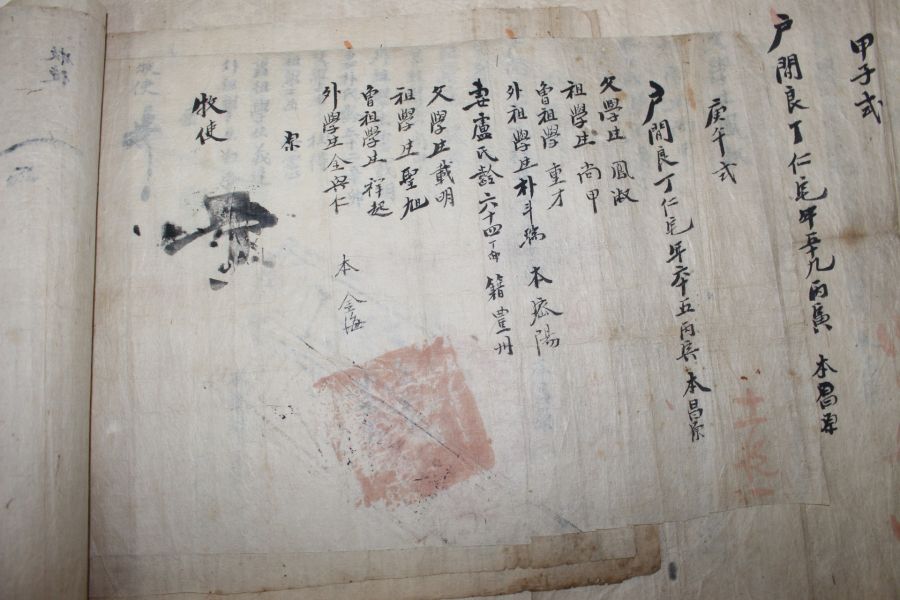 甲子式
戶閑良丁仁宅年五十九丙寅 本昌原
庚午式
戶閑良丁仁宅年六十五丙寅 本昌原
父學生 鳳淑
祖學生 尚甲
曾祖學 重才
外祖學生朴斗瑞 本密陽
妻盧氏齡六十四丁卯 籍豊州
父學生載明
祖學生聖旭
曾祖學生祥起
外學生金與仁 本金海
牧使